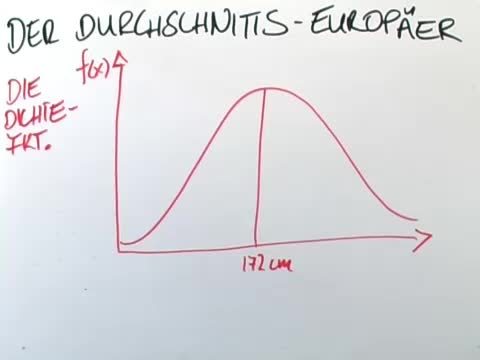 DER DURCHSCHNITTS-EUROPÄER
f(x)
DIE
DICHTE-
FKT.
172 cm